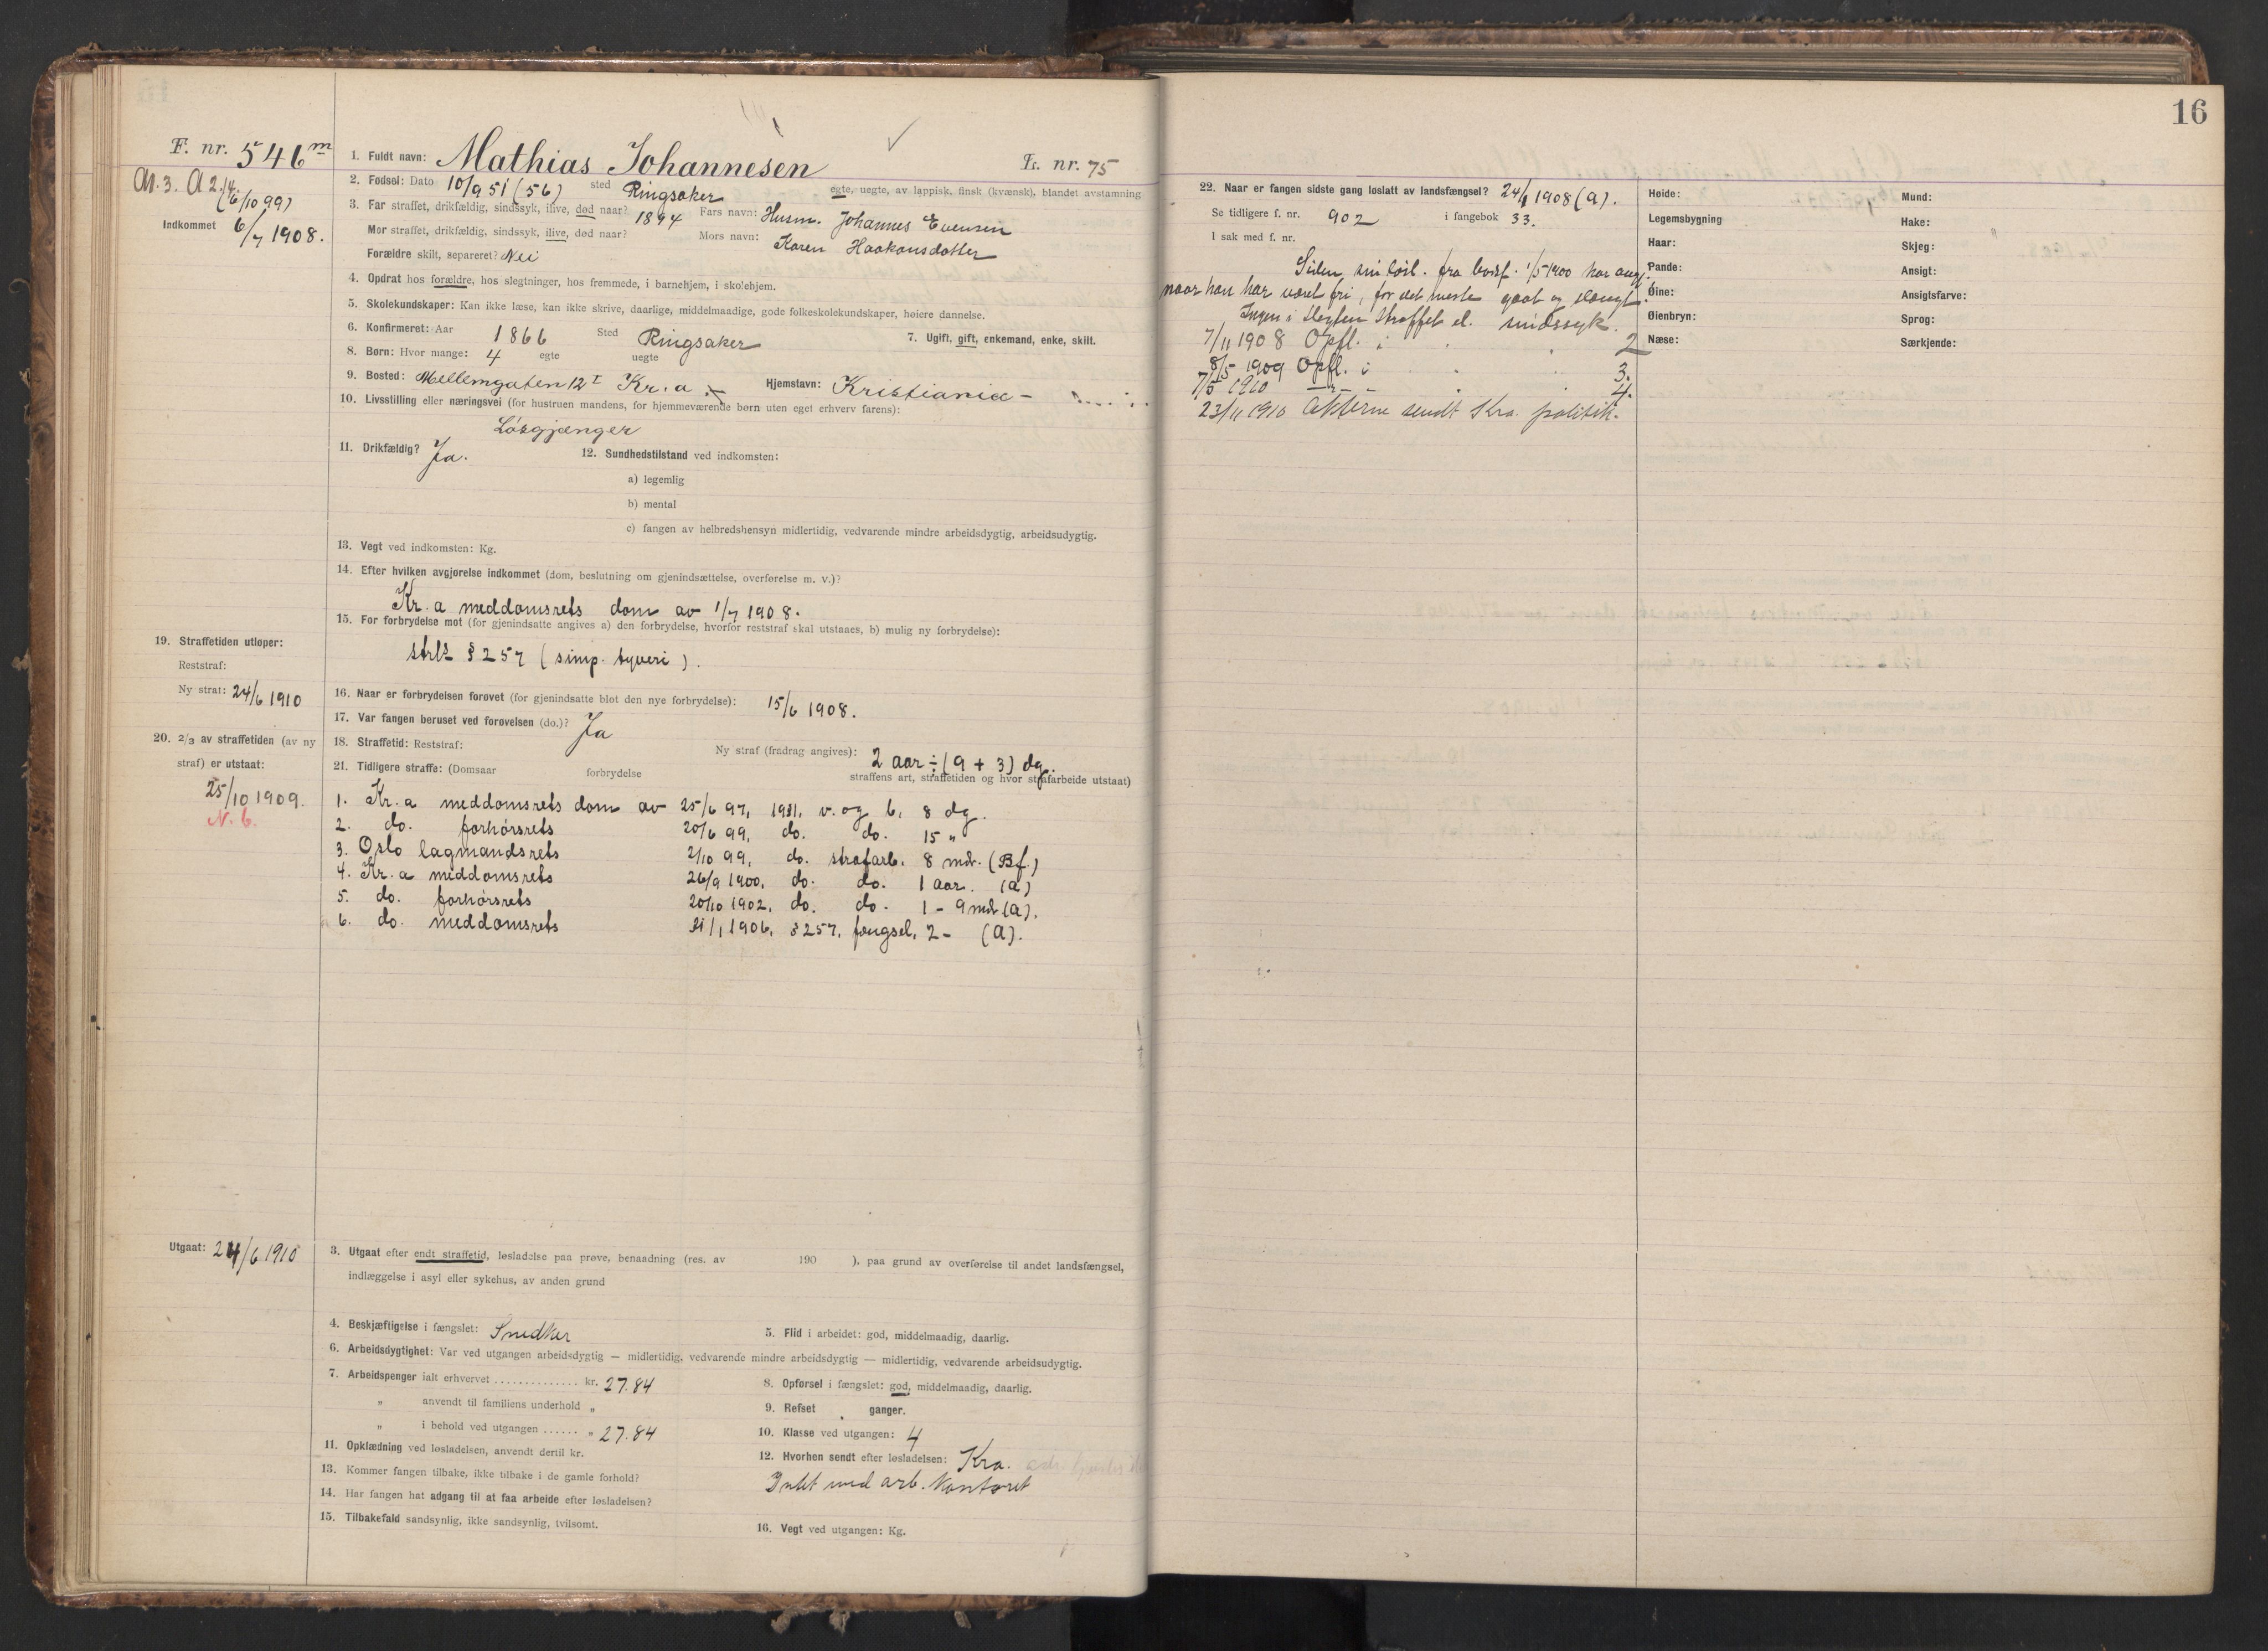 16
F. nr. 546 m
1. Fuldt navn: Mathias Johannesen
Fc. nr. 75
(6/10 99)
Indkommet 6/7 1908.
2. Fødsel: Dato 10/9 51 (56) sted Ringsaker egte, uegte, av lappisk, finsk (kvænsk), blandet avstamning
3. Far straffet, drikfældig, sindssyk, ilive, død naar? 1894 Fars navn: Husm. Johannes Evensen
Mor straffet, drikfældig, sindssyk, ilive, død naar? Mors navn: Karen Haakonsdatter
Forældre skilt, separeret? Nei
4. Opdrat hos forældre, hos slegtninger, hos fremmede, i barnehjem, i skolehjem.
5. Skolekundskaper: Kan ikke læse, kan ikke skrive, daarlige, middelmaadige, gode folkeskolekundskaper, høiere dannelse.
6. Konfirmeret: Aar 1866 Sted Ringsaker 7. Ugift, gift, enkemand, enke, skilt.
8. Børn: Hvor mange: 4 egte uegte
9. Bosted: Mellemgaten 12 I Kr.a Hjemstavn: Kristiania -
10. Livsstilling eller næringsvei (for hustruen mandens, for hjemmeværende børn uten eget erhverv farens):
Løsgjænger
11. Drikfældig? Ja. 12. Sundhedstilstand ved indkomsten:
a) legemlig
b) mental
c) fangen av helbredshensyn midlertidig, vedvarende mindre arbeidsdygtig, arbeidsudygtig.
13. Vegt ved indkomsten: Kg.
14. Efter hvilken avgjørelse indkommet (dom, beslutning om gjenindsættelse, overførelse m. v.)?
Kr.a meddomsrets dom av 1/7 1908.
15. For forbrydelse mot (for gjenindsatte angives a) den forbrydelse, hvorfor reststraf skal utstaaes, b) mulig ny forbrydelse):
strl. § 257 (simp. tyveri).
19. Straffetiden utløper:
Reststraf:
Ny straf: 24/6 1910
16. Naar er forbrydelsen forøvet (for gjenindsatte blot den nye forbrydelse): 15/6 1908.
17. Var fangen beruset ved forøvelsen (do.)? Ja
20. 2/3 av straffetiden (av ny
straf) er utstaat:
25/10 1909.
N. b.
18. Straffetid: Reststraf: Ny straf (fradrag angives): 2 aar ÷ (9 + 3) dg.
21. Tidligere straffe: (Domsaar forbrydelse straffens art, straffetiden og hvor strafarbeide utstaat)
1. Kr.a meddomsrets dom av 25/6 97, 1931, v. og b, 8 dg.
2. do. forhørsrets 20/6 99, do. do. 15 "
3. Oslo lagmandsrets 2/10 99, do. strafarb. 8 mdr. (Bf.)
4. Kr.a meddomsrets 26/9 1900, do. do. 1 aar. (A)
5. do. forhørsrets 20/10 1902, do. do. 1 - 9 mdr (A).
6. do. meddomsrets 1906, § 257, fængsel, 2 - (A).
Utgaat: 24/6 1910
3. Utgaat efter endt straffetid, løsladelse paa prøve, benaadning (res. av 190 ), paa grund av overførelse til andet landsfængsel,
indlæggelse i asyl eller sykehus, av anden grund
4. Beskjæftigelse i fængslet: Snedker
5. Flid i arbeidet: god, middelmaadig, daarlig.
6. Arbeidsdygtighet: Var ved utgangen arbeidsdygtig — midlertidig, vedvarende mindre arbeidsdygtig — midlertidig, vedvarende arbeidsudygtig.
7. Arbeidspenger ialt erhvervet .............. kr. 27.84
8. Opførsel i fængslet: god, middelmaadig, daarlig.
" anvendt til familiens underhold "
9. Refset ganger.
" i behold ved utgangen ...... " 27.84
10. Klasse ved utgangen: 4
11. Opklædning ved løsladelsen, anvendt dertil kr.
12. Hvorhen sendt efter løsladelsen: Kra.
13. Kommer fangen tilbake, ikke tilbake i de gamle forhold?
Intet med arb. kontoret
14. Har fangen hat adgang til at faa arbeide efter løsladelsen?
15. Tilbakefald sandsynlig, ikke sandsynlig, tvilsomt.
16. Vegt ved utgangen: Kg.
22. Naar er fangen sidste gang løslatt av landsfængsel? 24/1 1908 (A).
Se tidligere f. nr. 902 i fangebok 33.
I sak med f. nr.
Siden sin løsl. fra bodsf. 1/5 1900 har
naar han har været fri, for det meste gaat og slængt.
Ingen i slegten straffet el. sindssyk.
7/11 1908 Opfl. i 2
8/5 1909 Opfl. i 3.
7/5 1910 - " - 4.
23/11 1910 Akterne sendt Kra. politik.
Høide:
Legemsbygning
Haar:
Pande:
Øine:
Øienbryn:
Næse:
Mund:
Hake:
Skjeg:
Ansigt:
Ansigtsfarve:
Sprog:
Særkjende: